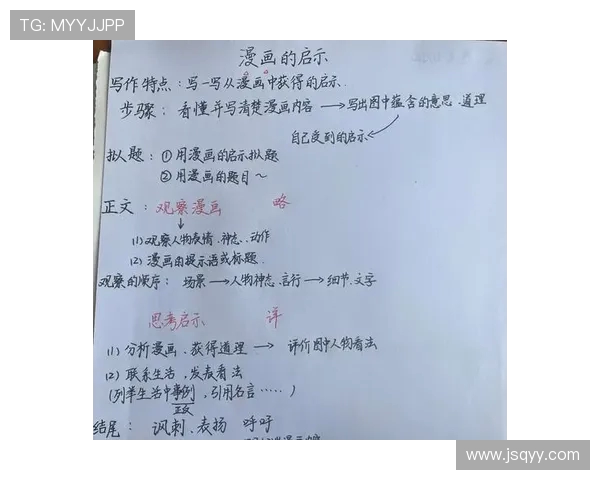 TG: MYYJJPP
漫画的启示
写作特点：写一写从漫画中获得的启示.
步骤：看懂并写清楚漫画内容 → 写出图中蕴含的意思、道理
自己受到的启示
拟人题：① 用漫画的启示拟人题
② 用漫画的题目～
正文：观察漫画 略
↓
(1) 观察人物表情、神态、动作
(2) 漫画中提示语或标题.
观察的顺序：场景 → 人物神态、言行 → 细节、文字
思考启示 详
(1) 分析漫画、获得道理 → 评价图中人物看法
(2) 联系生活，发表看法
(列举生活中事例，引用名言……)
正反
结尾：讽刺、表扬 呼吁
www.jsqyy.com